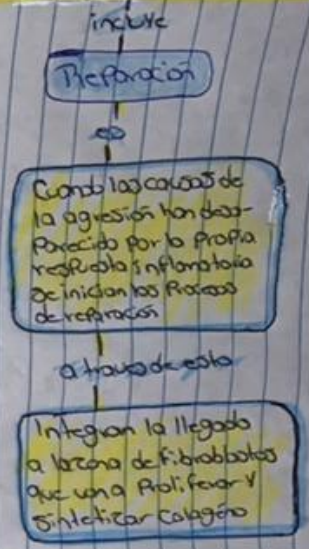 incluye
Reparación
es
Cuando las causas de
la agresión han desa-
parecido por la propia
respuesta inflamatoria
se inician los Procesos
de reparación
a traves de esto
Integran la llegada
a la zona de fibroblastos
que van a Proliferar y
sintetizar colageno